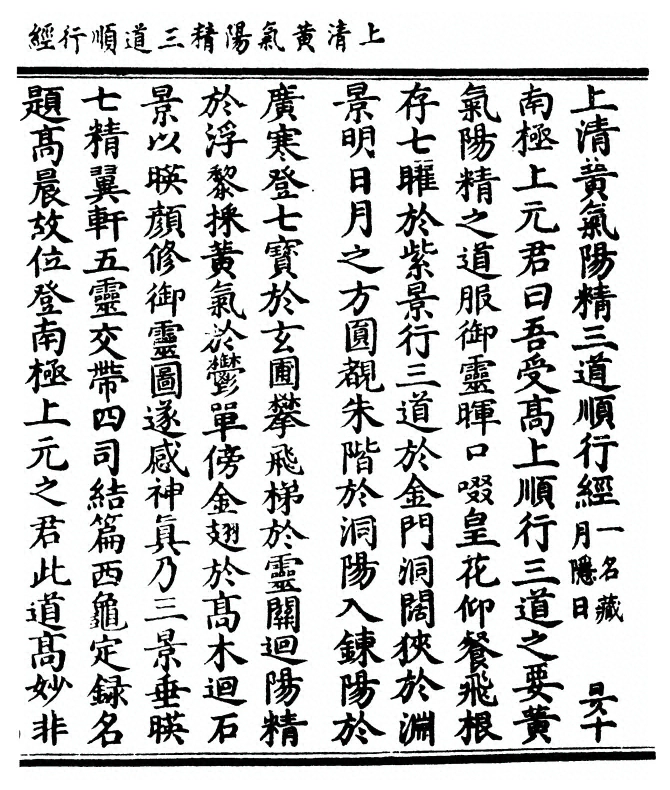 上清黃氣陽精三道順行經
上清黃氣陽精三道順行經一名藏月隱日 昃十
南極上元君曰吾受髙上順行三道之要黃
氣陽精之道服御靈暉口啜皇花仰餐飛根
存七曜於紫景行三道於金門洞闊狹於淵
景明日月之方圓覩朱階於洞陽入鍊陽於
廣寒登七寶於玄圃攀飛梯於靈闕迴陽精
於浮黎採黃氣於鬱單傍金翅於髙木迴石
景以暎顔修御靈圖遂感神真乃三景垂暎
七精翼軒五靈交帶四司結篇西龜定録名
題髙晨故位登南極上元之君此道髙妙非